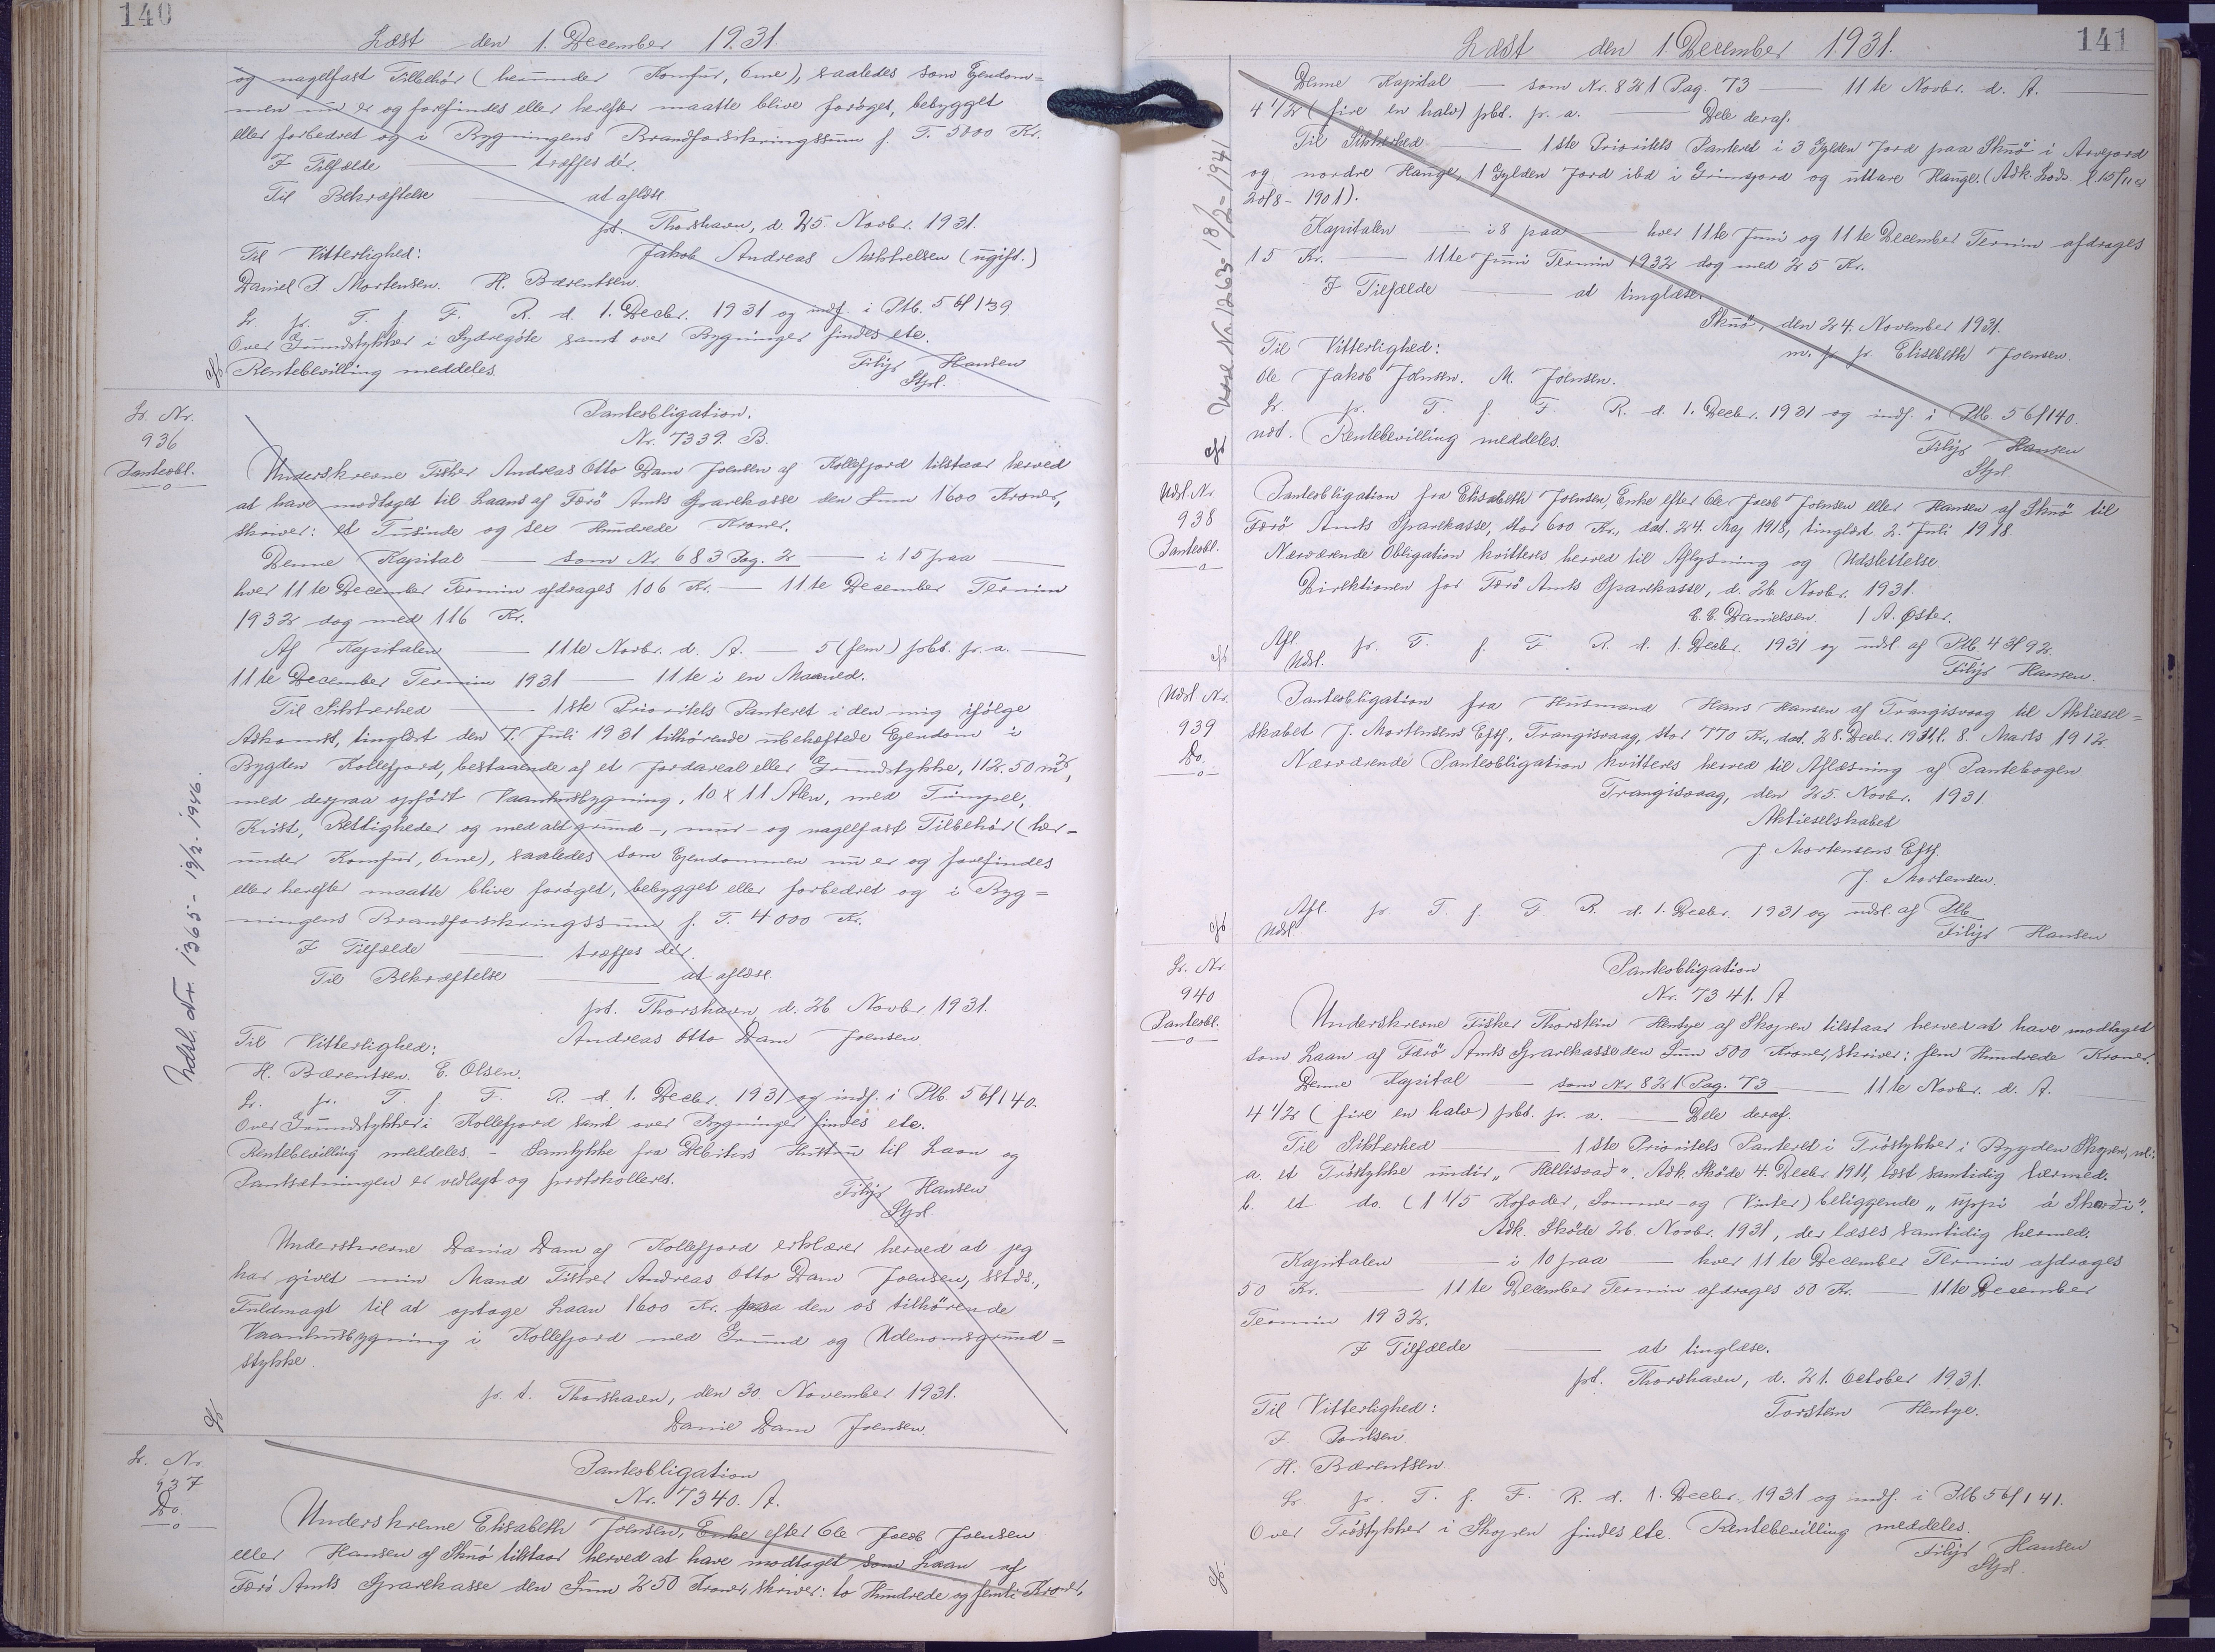 140
Læst den 1. December 1931.
og nagelfast Tilbehør (herunder Komfur, Ovne), saaledes som Ejendom=
men nu er og forefindes eller herefter maatte blive forøget, bebygget
eller forbedret og i Bygningens Brandforsikringssum f. T. 5000 Kr.
I Tilfælde — træffes der.
Til Bekræftelse — at aflæse.
pt. Thorshavn, d. 25 Novbr. 1931.
Til Vitterlighed: Jakob Andreas Mikkelsen (ugift.)
Daniel J Mortensen. H. Bærentsen.
Lr. pr. T. f. F. R. d. 1. Decbr. 1931 og indf. i Ptb. 56f139.
Over Grundstykker i Sydregöte samt over Bygninger findes etc.
Rentebevilling meddeles. Filip Hansen
Stpl.
Lr. Nr.
936
Panteobl.
Panteobligation.
Nr. 7339. B.
Underskrevne Fisker Andreas Otto Dam Joensen af Kollefjord tilstaar herved
at have modtaget til Laans af Færö Amts Sparekasse den Sum 1600 Kroner,
skriver: et Tusinde og sex Hundrede Kroner.
Denne Kapital — som Nr 683 Pag. 2 — i 15 paa —
hver 11te December Termin afdrages 106 Kr. — 11te December Termin
1932 dog med 116 Kr.
Af Kapitalen — 11te Novbr. d. A. — 5 (fem) pbt. pr. a. —
11te December Termin 1931 — 11te i en Maaned.
Til Sikkerhed — 1ste Prioritets Panteret i den mig ifölge
Adkomst, tinglæst den 7. Juli 1931 tilhørende ubehæftede Ejendom i
Bygden Kollefjord, bestaaende af et Jordareal eller Grundstykke, 112.50 m²,
med derpaa opført Vaanhusbygning, 10 x 11 Alen, med Tümpel,
Kvist, Rettigheder og med alt grund-, mur- og nagelfast Tilbehör (her=
under Komfur, Ovne), saaledes som Ejendommen nu er og forefindes
eller herefter maatte blive forøget, bebygget eller forbedret og i Byg=
ningens Brandforsikringssum f. T. 4000 Kr.
I Tilfælde — træffes der.
Til Bekræftelse — at aflæse.
pt. Thorshavn, d. 26 Novbr 1931.
Til Vitterlighed: Andreas Otto Dam Joensen.
H. Bærentsen. E. Olsen.
Lr. pr. T. f. F. R. d. 1. Decbr. 1931 og indf. i Ptb 56f140.
Over Grundstykker i Kollefjord samt over Bygninger findes etc.
Rentebevilling meddeles. – Samtykke fra Debitors Hustru til Laan og
Pantsætningen er vedlagt og protokolleret. Filip Hansen
Stpl.
Underskrevne Dania Dam af Kollefjord erklærer herved at jeg
har givet min Mand Fisker Andreas Otto Dam Joensen, sstds.,
Fuldmagt til at optage Laan 1600 Kr. paa den os tilhørende
Vaanhusbygning i Kollefjord med Grund og Udenomsgrund=
stykke.
p. t. Thorshavn, den 30 November 1931.
Danie Dam Joensen
Udsl. Nr. 1365 - 19/2 1946.
Lr. Nr.
937
Do.
Panteobligation
Nr. 7340. A.
Underskrevne Elisabeth Joensen, Enke efter Ole Jacob Joensen
eller Hansen af Skuö tilstaar herved at have modtaget som Laan af
Færö Amts Sparekasse den Sum 250 Kroner, skriver: to Hundrede og femti Kroner,
141
Læst den 1. December 1931.
Denne Kapital — som Nr. 821 Pag. 73 — 11te Novbr. d. A. —
4 1/2 (fire en halv) pbt. pr. a. — Dele deraf.
Til Sikkerhed — 1ste Prioritets Panteret i 3 Gylden Jord paa Skuö i Arvejord
og nordre Hauge, 1 Gylden Jord ibd i Grimsjord og uttare Hauge. (Adk. Lods. l. 15/11 og
20/8 - 1901).
Kapitalen — i 8 paa — hver 11te Juni og 11te December Termin afdrages
15 Kr. — 11te Juni Termin 1932 dog med 25 Kr.
I Tilfælde — at tinglæse.
Skuö, den 24. November 1931.
Til Vitterlighed: m. f. p. Elisebeth Joensen.
Ole Jakob Joensen. M. Joensen.
Lr pr. T. f. F. R. d. 1. Decbr. 1931 og indf. i Ptb 56f140.
Rentebevilling meddeles. Filip Hansen
Stpl.
Nr. 1263 - 18/2 - 1941
Udsl. Nr.
938
Panteobl.
Panteobligation fra Elisabeth Joensen, Enke efter Ole Jacob Joensen eller Hansen af Skuö til
Færö Amts Sparekasse, stor 600 Kr., dat. 24. Maj 1918, tinglæst 2. Juli 1918.
Nærværende Obligation kvitteres herved til Aflysning og Udslettelse.
Direktionen for Færö Amts Sparekasse, d. 26 Novbr. 1931.
E. E. Danielsen. J A. Øster.
Afl. pr. T. f. F R. d. 1. Decbr. 1931 og udsl. af Ptb. 43f92.
Udsl. Filip Hansen.
Udsl. Nr.
939
Do.
Panteobligation fra Husmand Hans Hansen af Trangisvaag til Aktiesel=
skabet J. Mortensens Eftf., Trangisvaag, stor 770 Kr., dat. 28. Decbr. 1911, l. 8. Marts 1912.
Nærværende Panteobligation kvitteres herved til Aflæsning af Pantebogen.
Trangisvaag, den 25. Novbr. 1931.
Aktieselskabet
J. Mortensens Eftf.
J. Mortensen.
Afl. pr. T. f. F R. d. 1. Decbr. 1931 og udsl. af Ptb
Udsl. Filip Hansen
Lr. Nr.
940
Panteobl.
Panteobligation
Nr. 7341. A
Underskrevne Fisker Thorstein Hentze af Skopen tilstaar herved at have modtaget
som Laan af Færö Amts Sparekasse den Sum 500 Kroner, skriver: fem Hundrede Kroner.
Denne Kapital — som Nr 821 Pag. 73 — 11te Novbr. d. A. —
4 1/2 (fire en halv) pbt. pr. a. — Dele deraf.
Til Sikkerhed — 1ste Prioritets Panteret i Tröstykker i Bygden Skopen, nl.:
a. et Tröstykke undir „Hellisvað“. Adk. Sköde 4. Decbr. 1911, læst samtidig hermed.
b. et do. (1 1/5 Kofoder, Sommer- og Vinter) beliggende „uppi á Skarði“.
Adk. Sköde 26. Novbr. 1931, der læses samtidig hermed.
Kapitalen — i 10 paa — hver 11te December Termin afdrages
50 Kr. — 11te December Termin afdrages 50 Kr. — 11te December
Termin 1932.
I Tilfælde — at tinglæse.
pt. Thorshavn, d. 21. October 1931.
Til Vitterlighed: Torstein Hentze.
F. Poulsen.
H. Bærentsen.
Lr pr. T. f. F. R. d. 1. Decbr. 1931 og indf. i Ptb 56f141.
Over Tröstykker i Skopen findes etc. Rentebevilling meddeles.
Filip Hansen
Stpl.